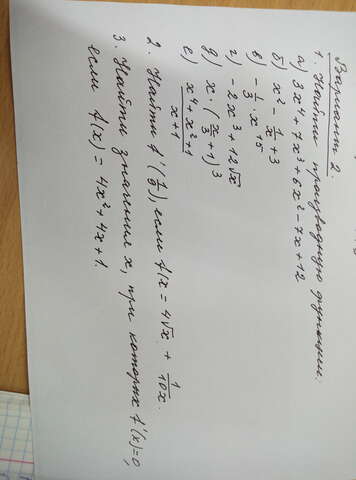 Вариант 2.
1. Найти производную функции.
а) 3x⁴ + 7x³ + 6x² - 7x + 12
б) x² - 1/x + 3
в) - 1/3 · x⁺⁵
г) - 2x³ + 12√x
д) x · (x/3 + 1)³
е) (x⁴ + x² + 1)/(x + 1)
2. Найти f'(1/9), если f(x = 4√x + 1/10x.
3. Найти значения x, при которых f'(x)=0,
если f(x) = 4x² + 4x + 1.